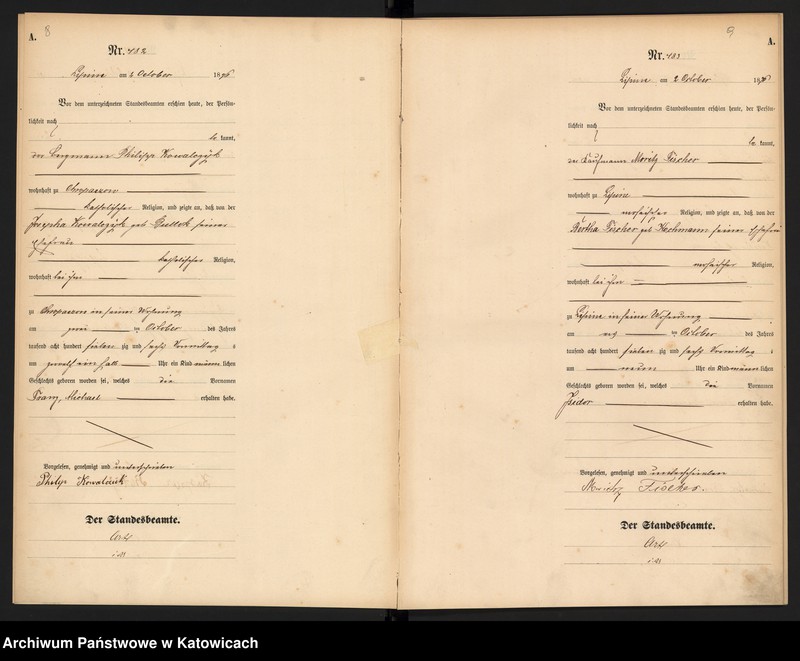 8
A.
Nr. 482
Lipine am 3 October 1876
Vor dem unterzeichneten Standesbeamten erschien heute, der Persön-
lichkeit nach
be kannt,
der Bergmann Philipp Kowalczyk
wohnhaft zu Chropaczow
katholischer Religion, und zeigte an, daß von der
Josepha Kowalczyk geb. seiner
Ehefrau
katholischer Religion,
wohnhaft bei ihm
zu Chropaczow in seiner Wohnung
am zwei ten October des Jahres
tausend acht hundert sieben zig und sechs Vormittag s
um zwoelf ein halb Uhr ein Kind männ lichen
Geschlechts geboren worden sei, welches die Vornamen
Franz, Michael erhalten habe.
Vorgelesen, genehmigt und unterschrieben
Philip Kowalczik
Der Standesbeamte.
9
A.
Nr. 483
Lipine am 3 October 1876
Vor dem unterzeichneten Standesbeamten erschien heute, der Persön-
lichkeit nach
be kannt,
der Kaufmann Moritz Fischer
wohnhaft zu Lipine
mosaischer Religion, und zeigte an, daß von der
Bertha Fischer geb. Hechmann seiner Ehefrau
mosaischer Religion,
wohnhaft bei ihm
zu Lipine in seiner Wohnung
am ten October des Jahres
tausend acht hundert sieben zig und sechs Vormittag s
um neun Uhr ein Kind männ lichen
Geschlechts geboren worden sei, welches die Vornamen
Isidor erhalten habe.
Vorgelesen, genehmigt und unterschrieben
Moritz Fischer.
Der Standesbeamte.
Archiwum Państwowe w Katowicach